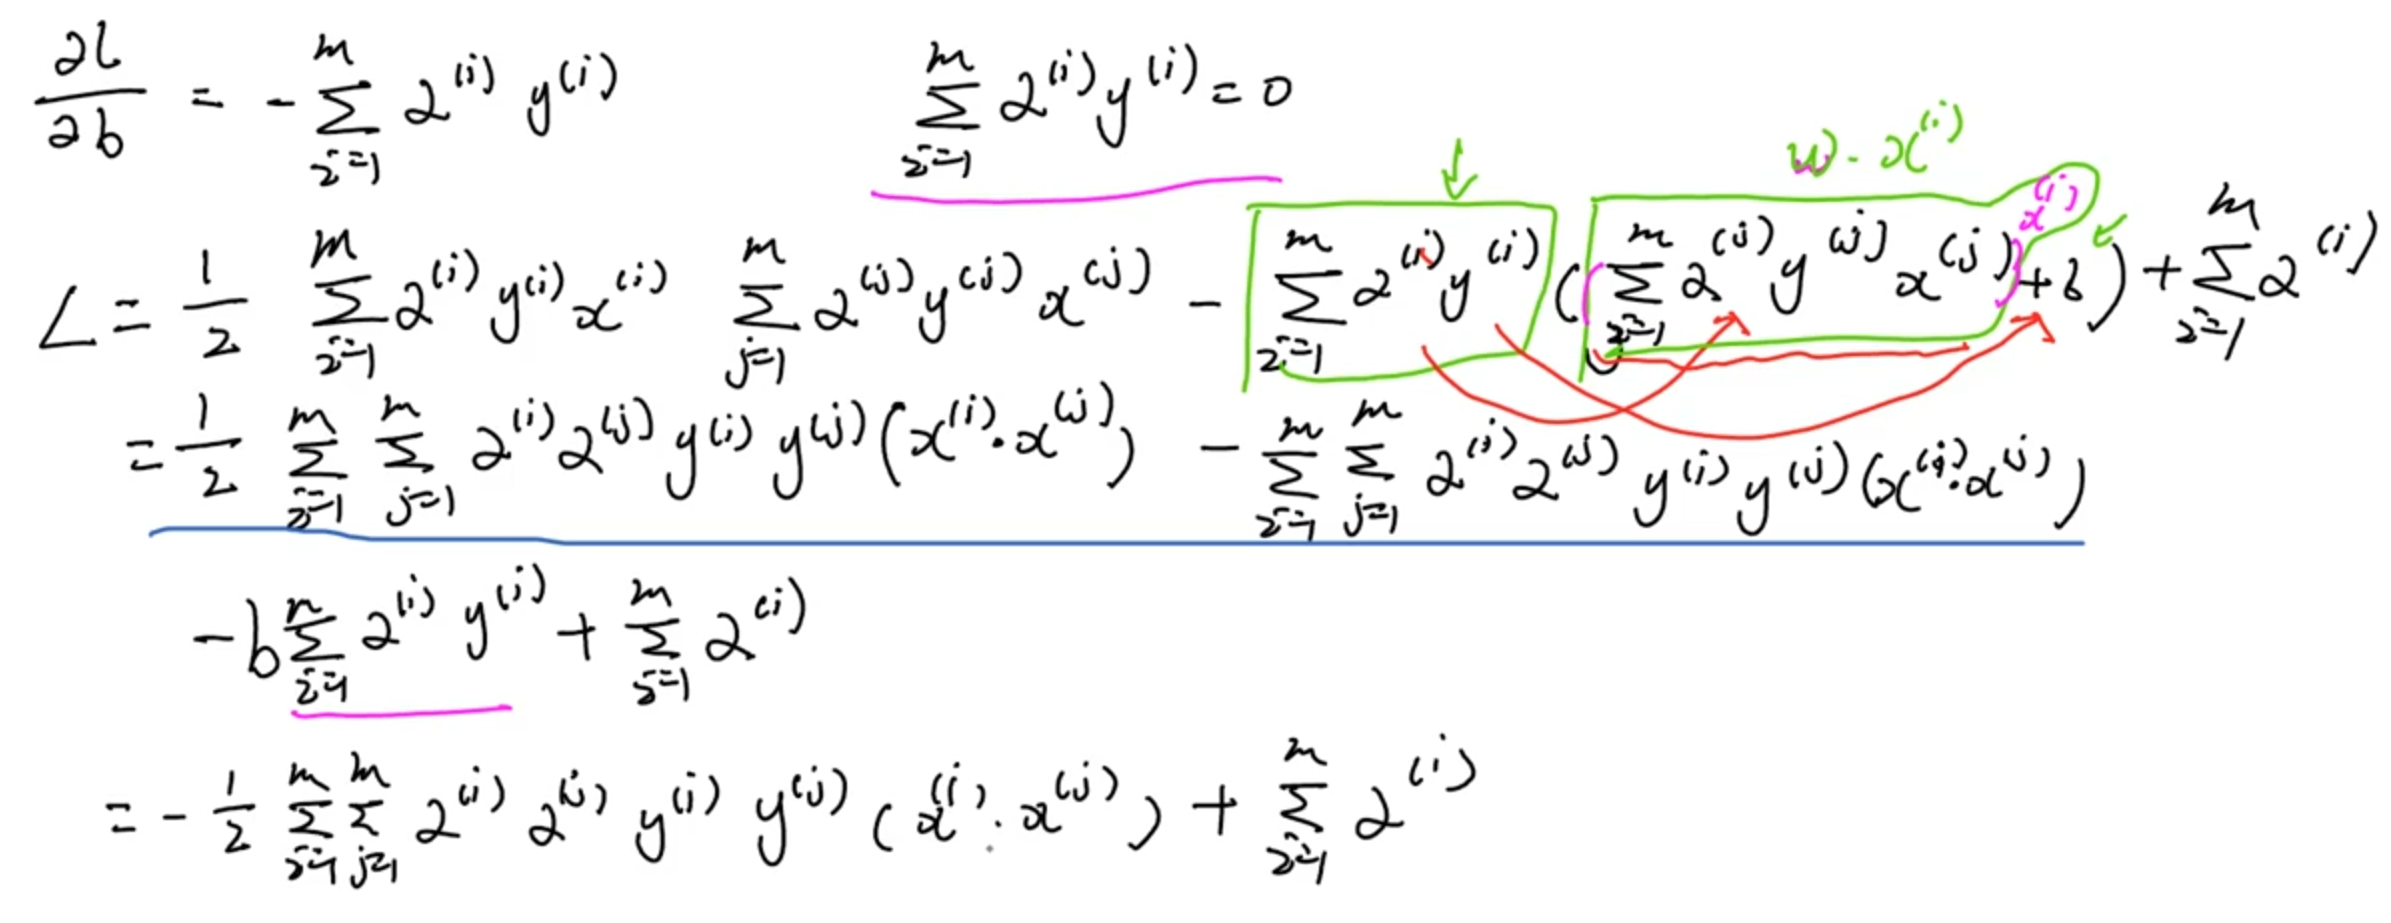 ∂L/∂b = - Σ_{i=1}^{m} α^{(i)} y^{(i)}    Σ_{i=1}^{m} α^{(i)} y^{(i)} = 0
w · x^{(i)}
L = 1/2 Σ_{i=1}^{m} α^{(i)} y^{(i)} x^{(i)} Σ_{j=1}^{m} α^{(j)} y^{(j)} x^{(j)} - Σ_{i=1}^{m} α^{(i)} y^{(i)} ((Σ_{i=1}^{m} α^{(j)} y^{(j)} x^{(j)}) x^{(i)} + b) + Σ_{i=1}^{m} α^{(i)}
= 1/2 Σ_{i=1}^{m} Σ_{j=1}^{m} α^{(i)} α^{(j)} y^{(i)} y^{(j)} (x^{(i)} · x^{(j)}) - Σ_{i=1}^{m} Σ_{j=1}^{m} α^{(i)} α^{(j)} y^{(i)} y^{(j)} (x^{(i)} · x^{(j)})
- b Σ_{i=1}^{m} α^{(i)} y^{(i)} + Σ_{i=1}^{m} α^{(i)}
= - 1/2 Σ_{i=1}^{m} Σ_{j=1}^{m} α^{(i)} α^{(j)} y^{(i)} y^{(j)} (x^{(i)} · x^{(j)}) + Σ_{i=1}^{m} α^{(i)}